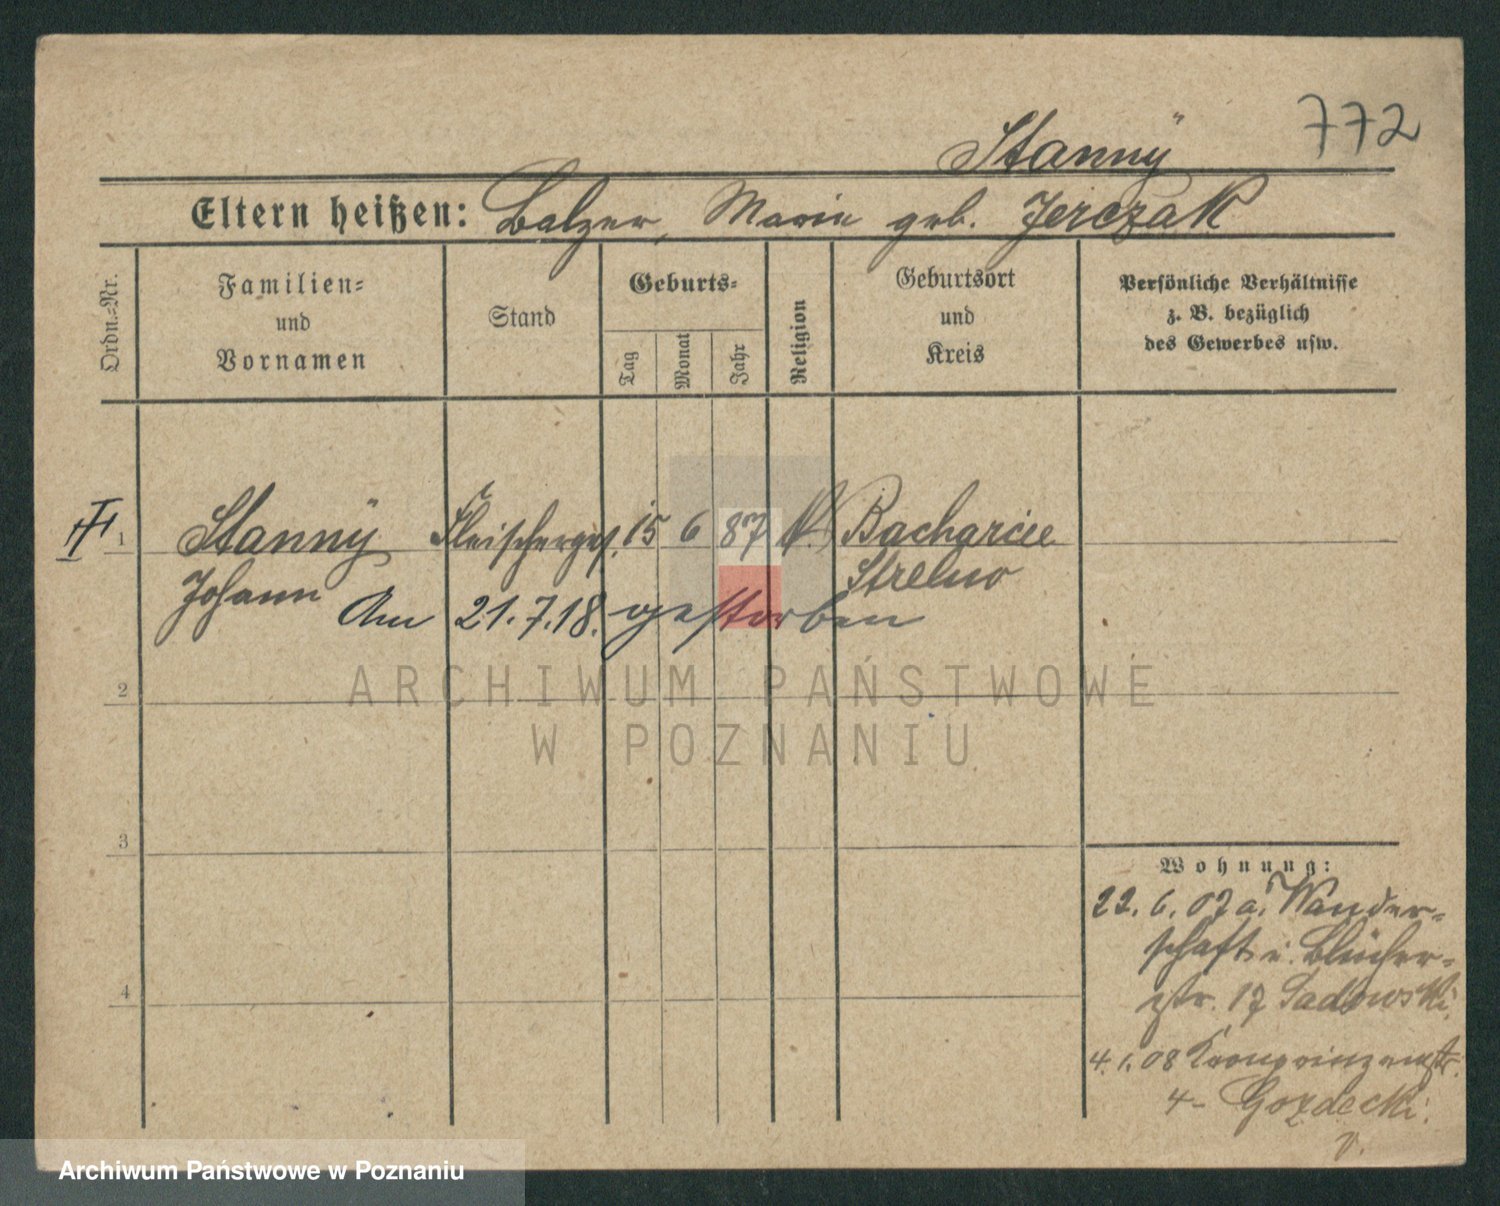 772
Stannÿ
Eltern heißen: Balzer, Marie geb. Jerczak
Ordn.-Nr.
Familien-
und
Vornamen
Stand
Geburts-
Tag
Monat
Jahr
Religion
Geburtsort
und
Kreis
Persönliche Verhältnisse
z. B. bezüglich
des Gewerbes usw.
1 Stannÿ Fleischerges. 15 6 87 k. Bacharcie
Johann Strelno
Am 21.7.18. gestorben
2
ARCHIWUM PAŃSTWOWE
W POZNANIU
3
4
Wohnung:
22. 6. 07 a. Wander-
schaft i. Blücher-
str. 17 Sadowski.
4. 1. 08 Kronprinzenstr.
4- Gozdecki.
v.
Archiwum Państwowe w Poznaniu